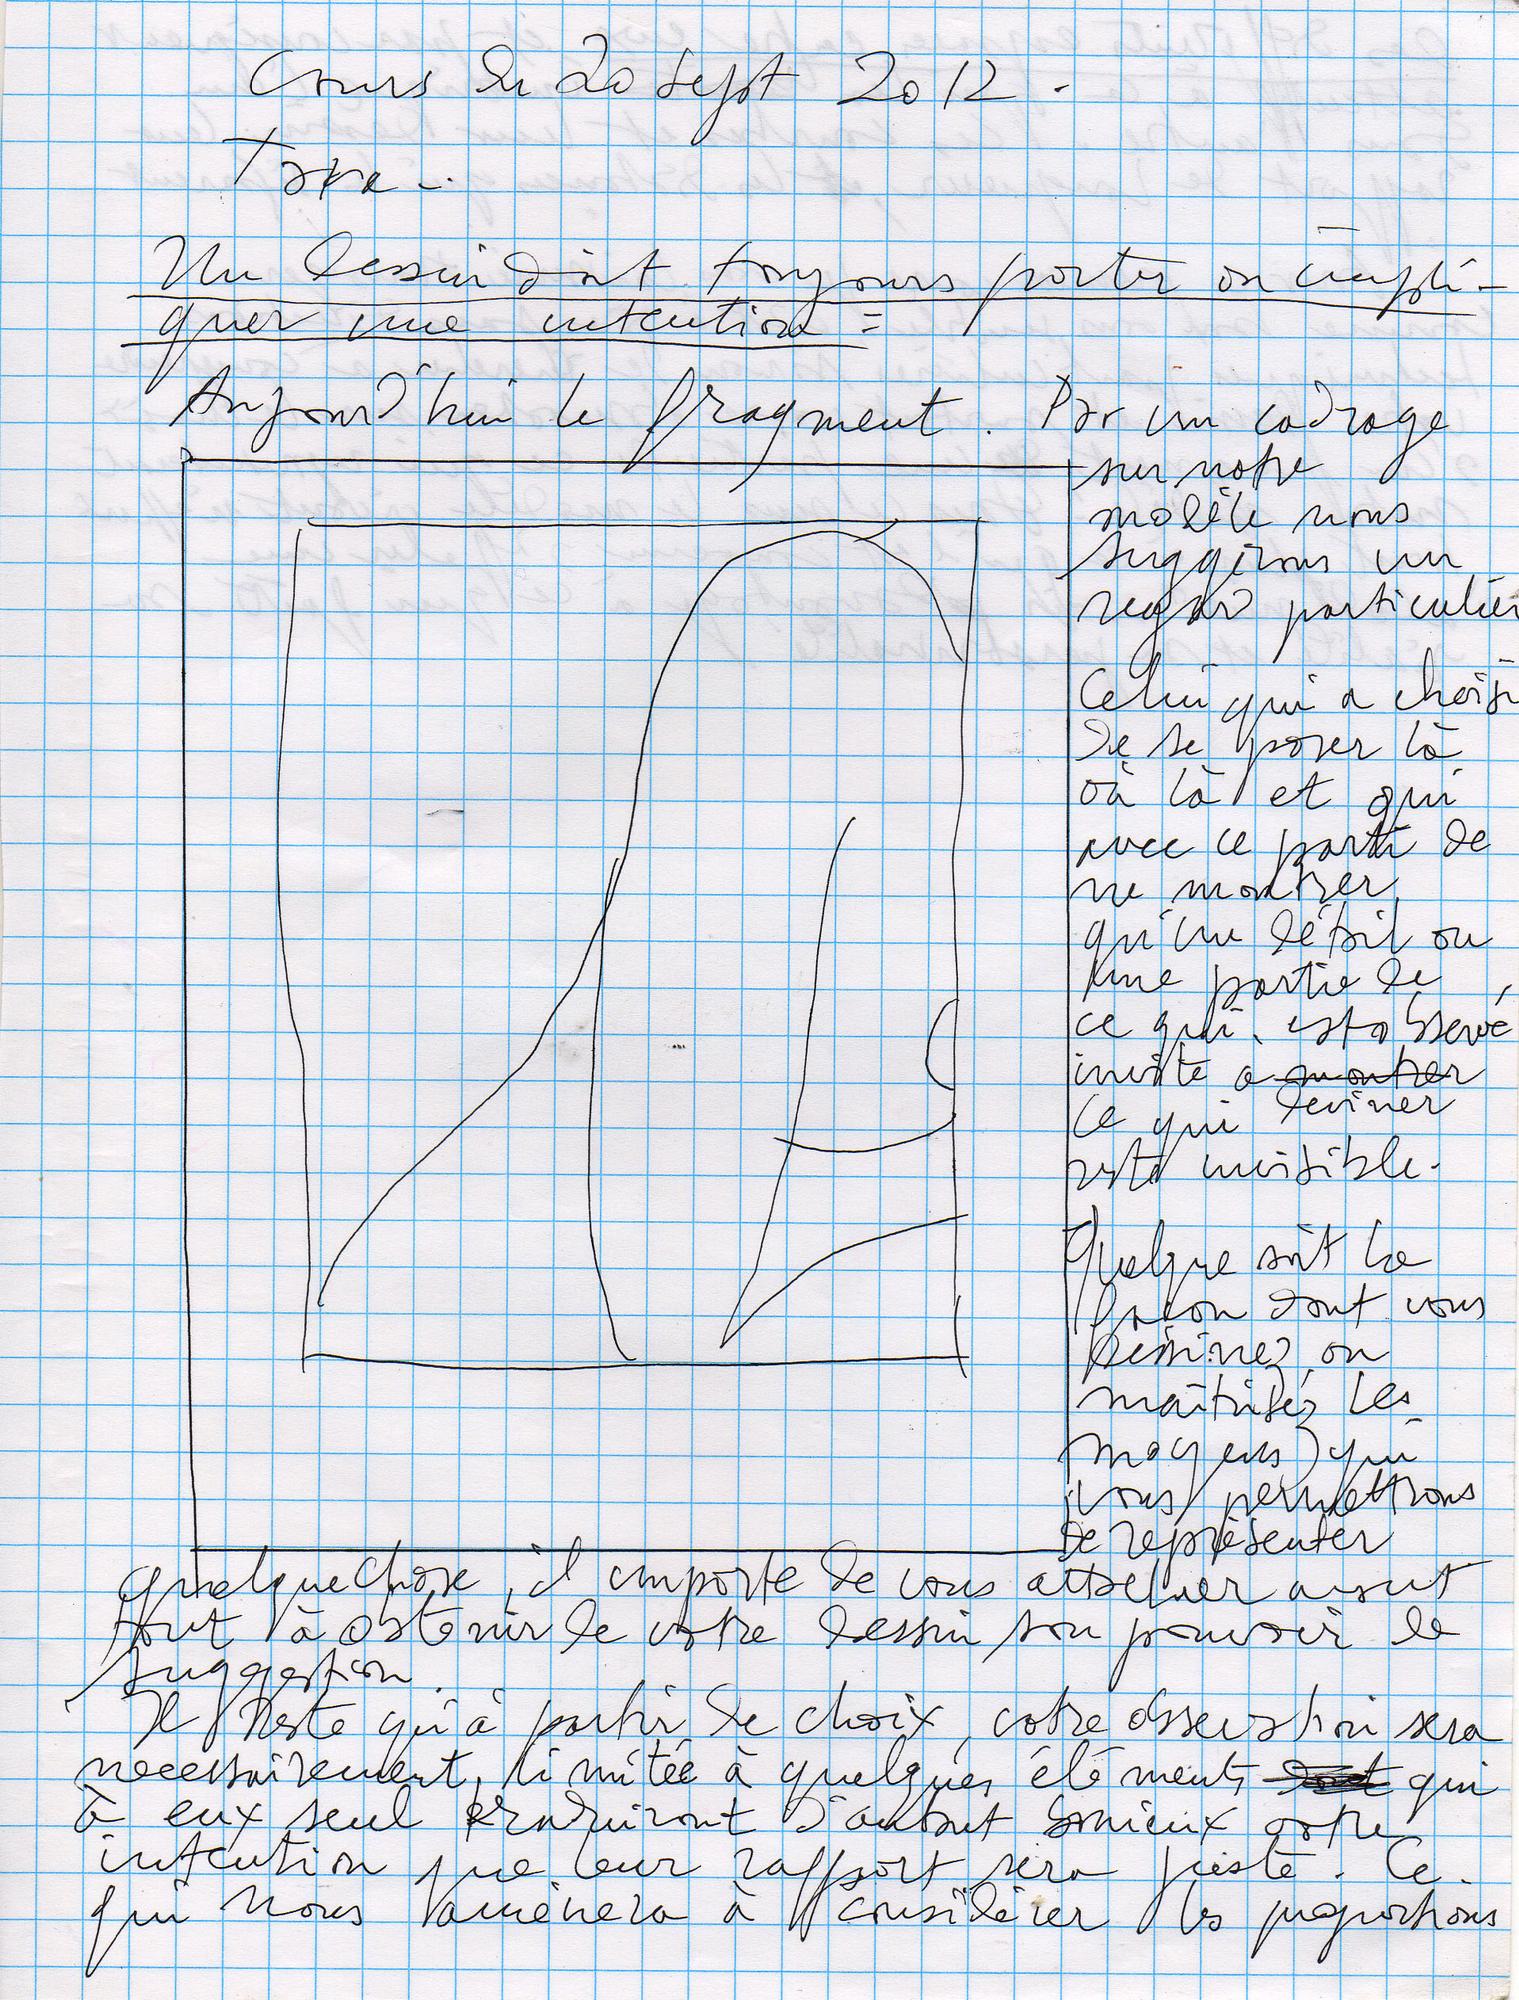 Cours du 20 Sept 2012.
Un dessin doit toujours porter ou impli-
quer une intention =
Aujourd'hui le fragment. Par un cadrage
sur notre
modèle nous
suggérons un
regard particulier
Celui qui a choisi
de se poser là
où là et qui
avec ce parti de
ne montrer
qu'un détail ou
une partie de
ce qui est observé,
invite a montrer
deviner
ce qui
reste invisible.
Quelque soit la
façon dont vous
dessinez ou
maîtrisez les
moyens qui
vous permettrons
de représenter
quelque chose, il importe de vous attacher avant
tout à obtenir de votre dessin son pouvoir de
suggestion.
Il reste qu'à partir de choix, votre observation sera
necessairement limitée à quelques éléments qui
à eux seul traduiront d'autant mieux votre
intention que leur rapport sera juste. Ce
qui nous amènera à considérer les proportions